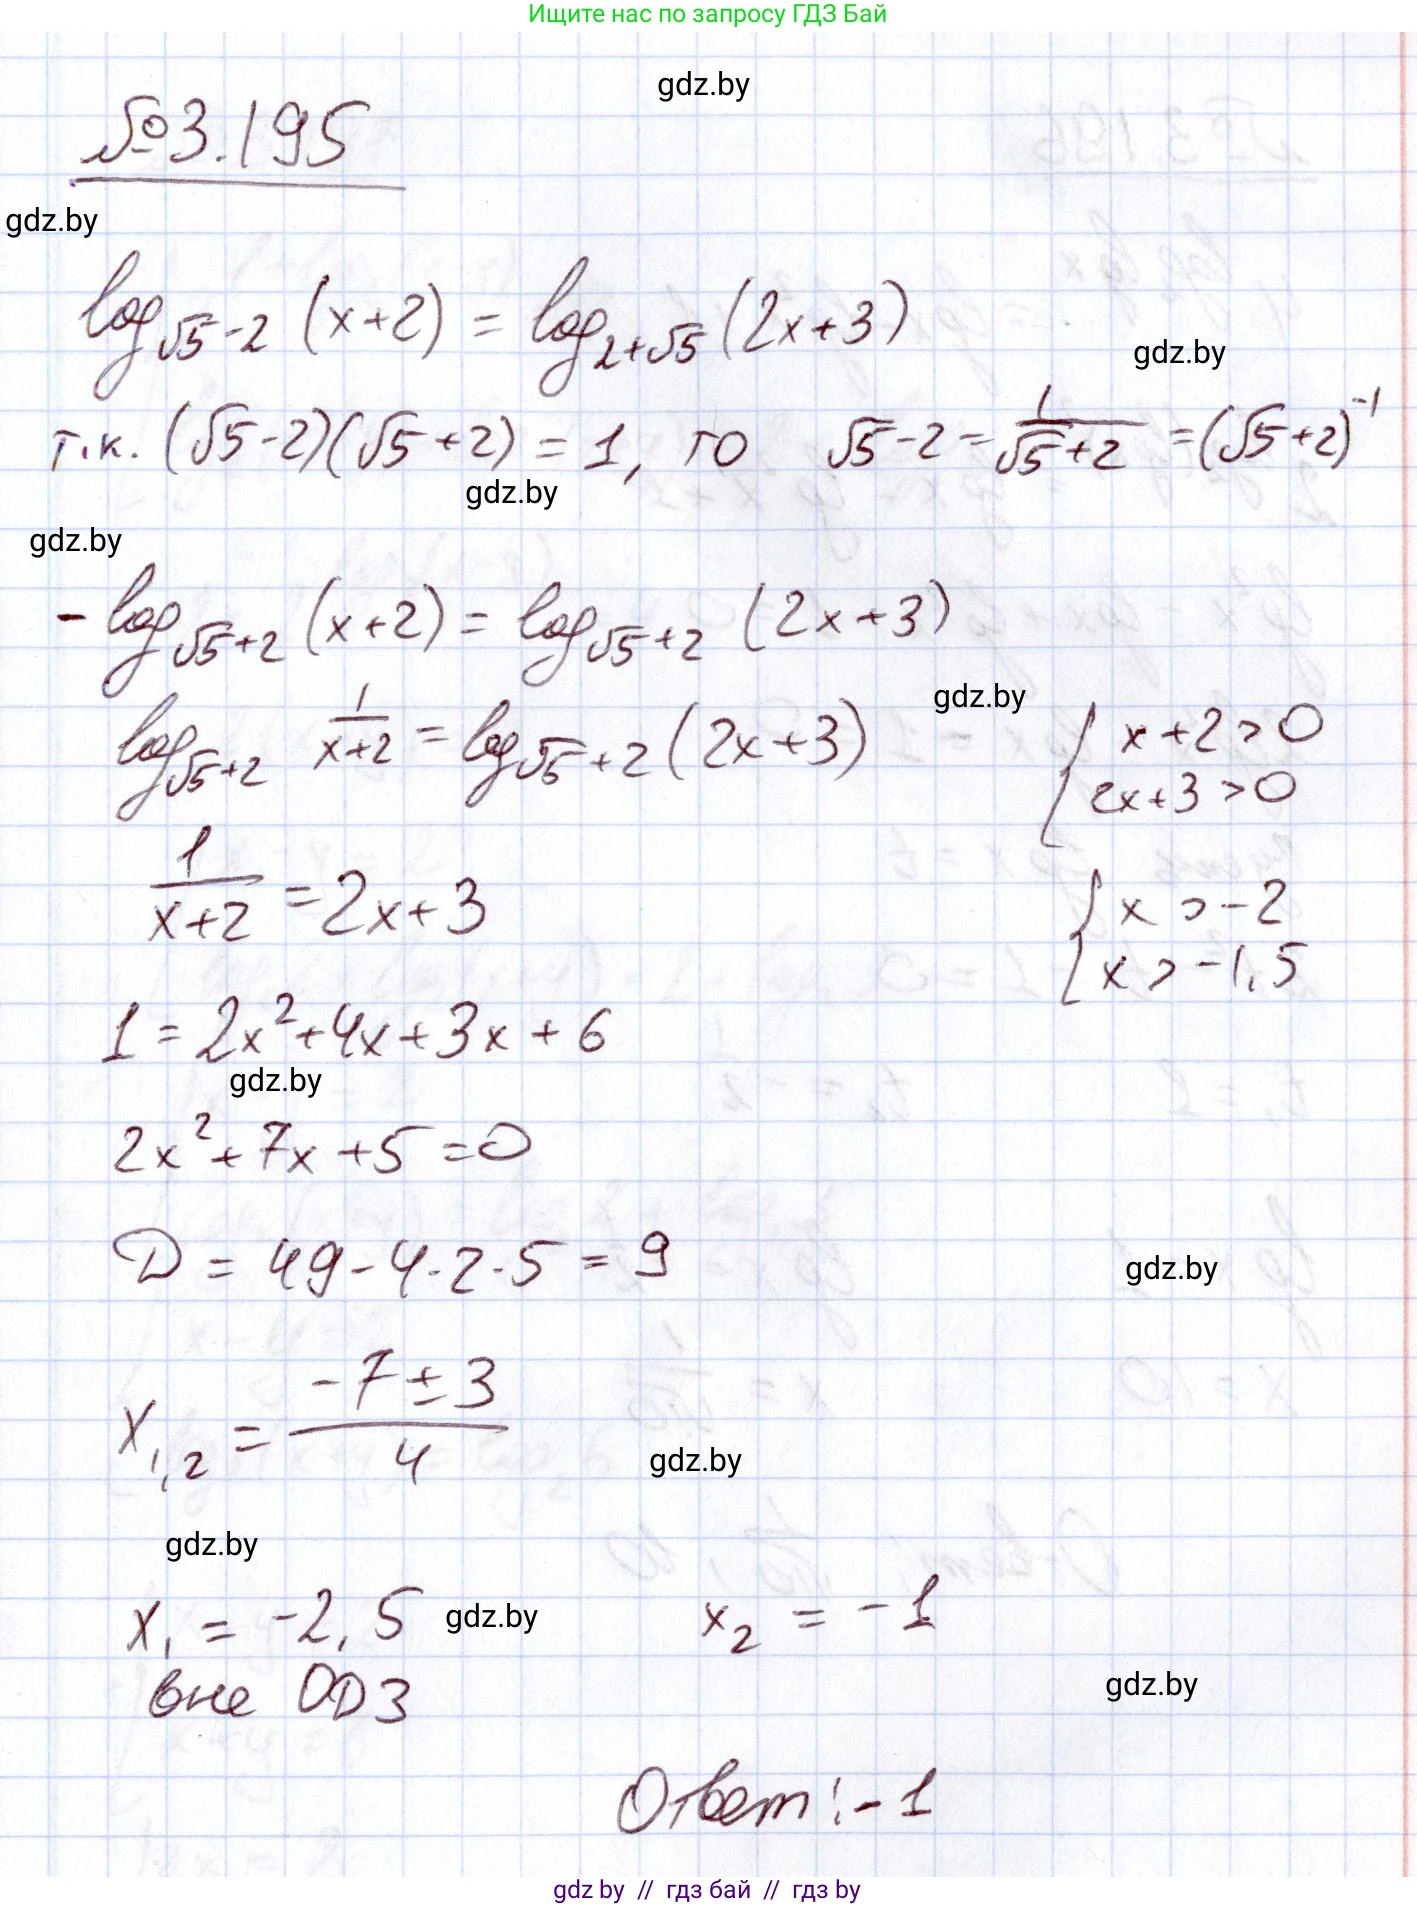 Ищите нас по запросу ГДЗ Бай
gdz.by
№3.195
gdz.by
log_{√5-2} (x+2) = log_{2+√5} (2x+3)
gdz.by
т.к. (√5-2)(√5+2) = 1, то √5-2 = 1/(√5+2) = (√5+2)^{-1}
gdz.by
gdz.by
-log_{√5+2} (x+2) = log_{√5+2} (2x+3)
gdz.by
log_{√5+2} 1/(x+2) = log_{√5+2} (2x+3)
{ x+2>0
2x+3>0
1/(x+2) = 2x+3
{ x > -2
x > -1,5
1 = 2x²+4x+3x+6
gdz.by
2x²+7x+5=0
D = 49-4·2·5 = 9
gdz.by
x_{1,2} = (-7±3)/4
gdz.by
gdz.by
x₁ = -2,5
gdz.by
x₂ = -1
вне ОДЗ
gdz.by
Ответ: -1
gdz by // гдз бай // гдз by